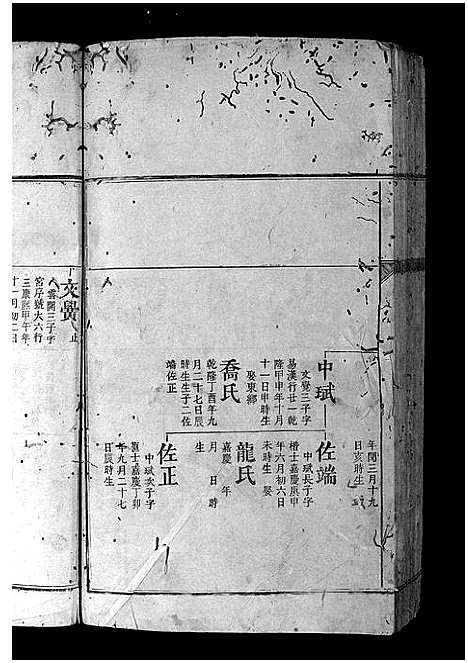 年閏三月十九
日亥時生
中珷
文覺三子字
易漢行廿一乾
隆甲申年十月
十一日申時生
娶東鄉
喬氏
乾隆丁酉年九
月二十七日辰
時生生子二佐
端佐正
佐端
中珷長子字
楷士嘉慶庚甲
年六月初六日
未時生娶
龍氏
嘉慶 年
月 日 時
生
佐正
中珷次子字
士嘉慶丁卯
年九月二十七
日辰時生
文
雲開三子字
宮序號大六行
三康熙甲午年
十一月初二日